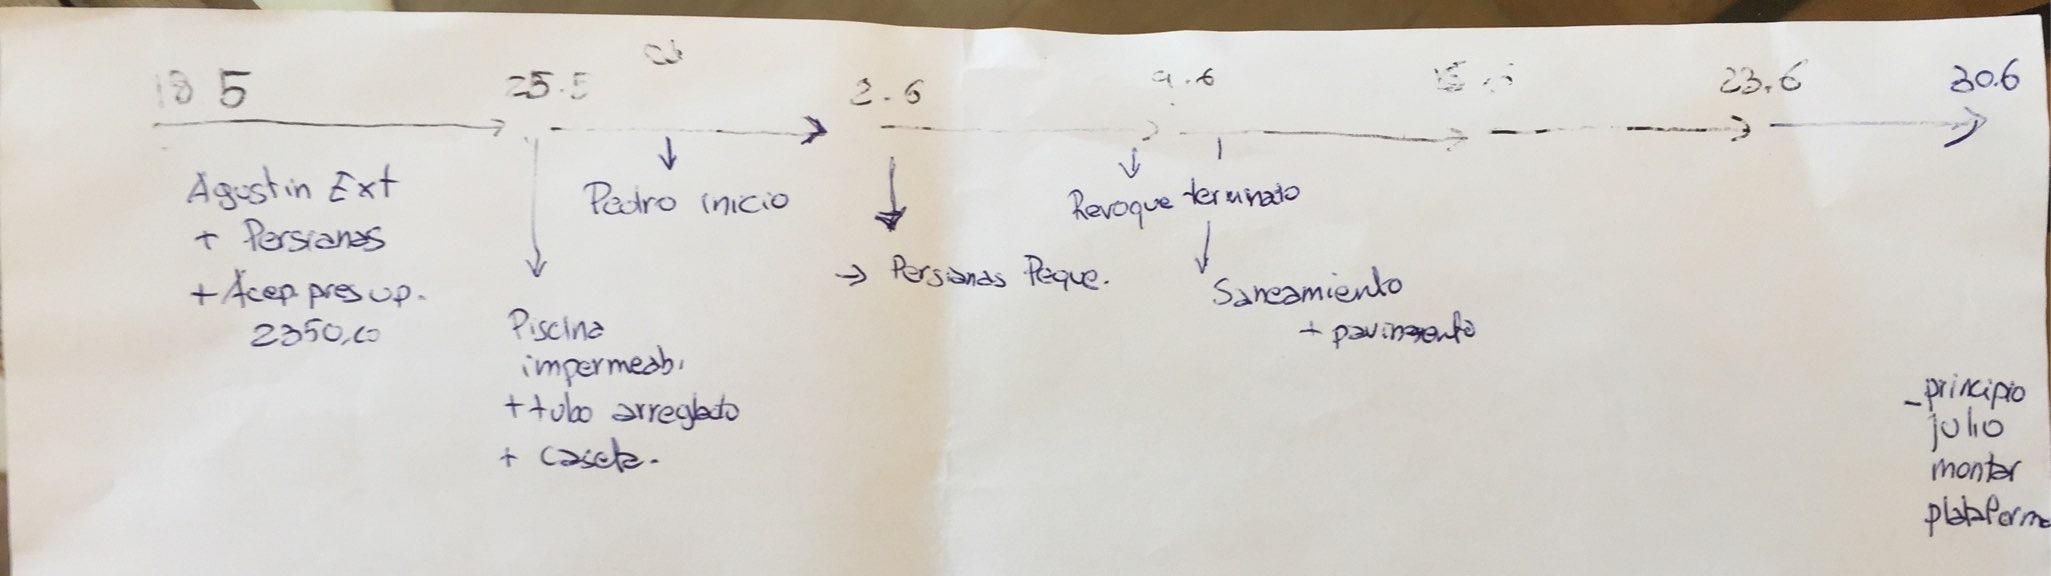 18 5
25.5
2.6
9.6
23.6
30.6
Agustin Ext
+ Persianas
+ Acep. presup.
2350,00
Pedro inicio
Piscina
impermeab.
+ tubo arreglado
+ caseta.
→ Persianas Peque.
Revoque terminato
Saneamiento
+ pavimento
- principio
julio
montar
plataforma